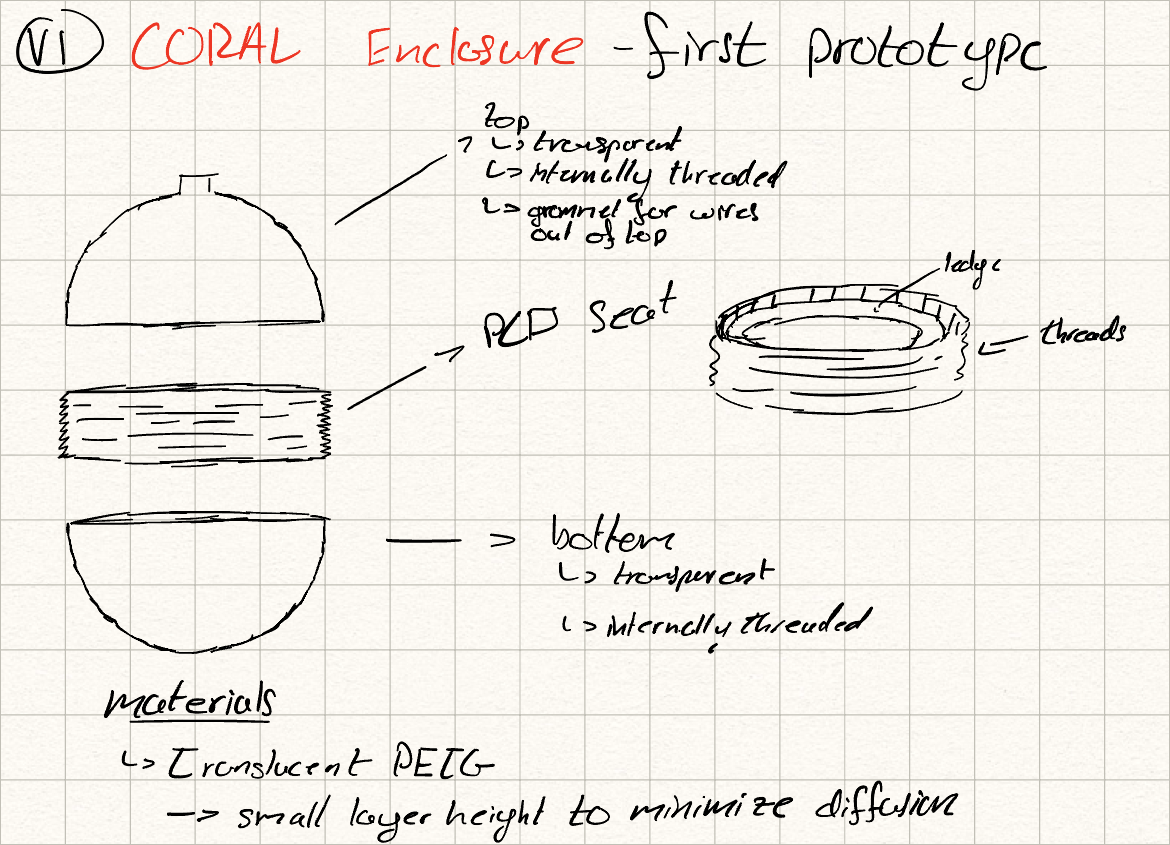 V1 CORAL Enclosure - first prototype
top
↳ transparent
↳ internally threaded
↳ grommet for wires
out of top
ledge
PCD Seat
threads
bottom
↳ transparent
↳ internally threaded
materials
↳ Translucent PETG
→ small layer height to minimize diffusion